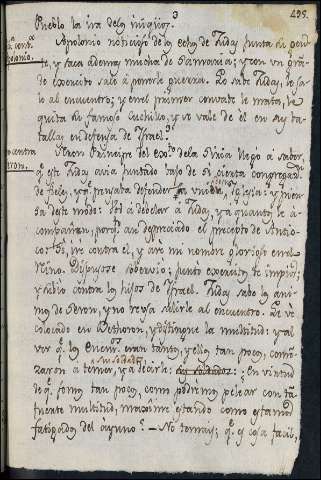 3
495.
Pueblo la ira de los iniquos.
Apolonio noticioso de los echos de Judas junta su gente
, y saca ademas mucha de Samaria; y con un gran
de exercito sale a ponerle guerra. Lo sabe Judas, le sa
le al encuentro; y en el primer convate le mata, le
quita su famoso Cuchillo, y se vale de el en sus ba
tallas en defensa de Ysrael.
contra
Seron.
Seron Principe del de la Siria llego a saber,
q. este Judas avia juntado baxo de si cierta congregacion
de fieles, y pensaba defender su visible Yglesia: y pien
sa deste modo: Yré a debelar a Judas, y a quantos le a
compañan, porq. an despreciado el precepto de Antio
co: Si, iré contra el, y aré mi nombre glorioso en el
Reino. Disponese sobervio; junto exercito de impios;
y salio contra los hijos de Ysrael. Judas sabe los ani
mos de Seron, y no reusa salirle al encuentro. Le vé
colocado en Bethoron, y distingue la multitud: y al
ver q. los enemigos eran tantos, y ellos tan pocos, comen
zaron a temer, sus soldados y a decirle: En virtud
de q. somos tan pocos, como podremos pelear con tan
fuerte multitud, maxime estando como estamos
fatigados del ayuno? — No temais; q. es cosa facil,